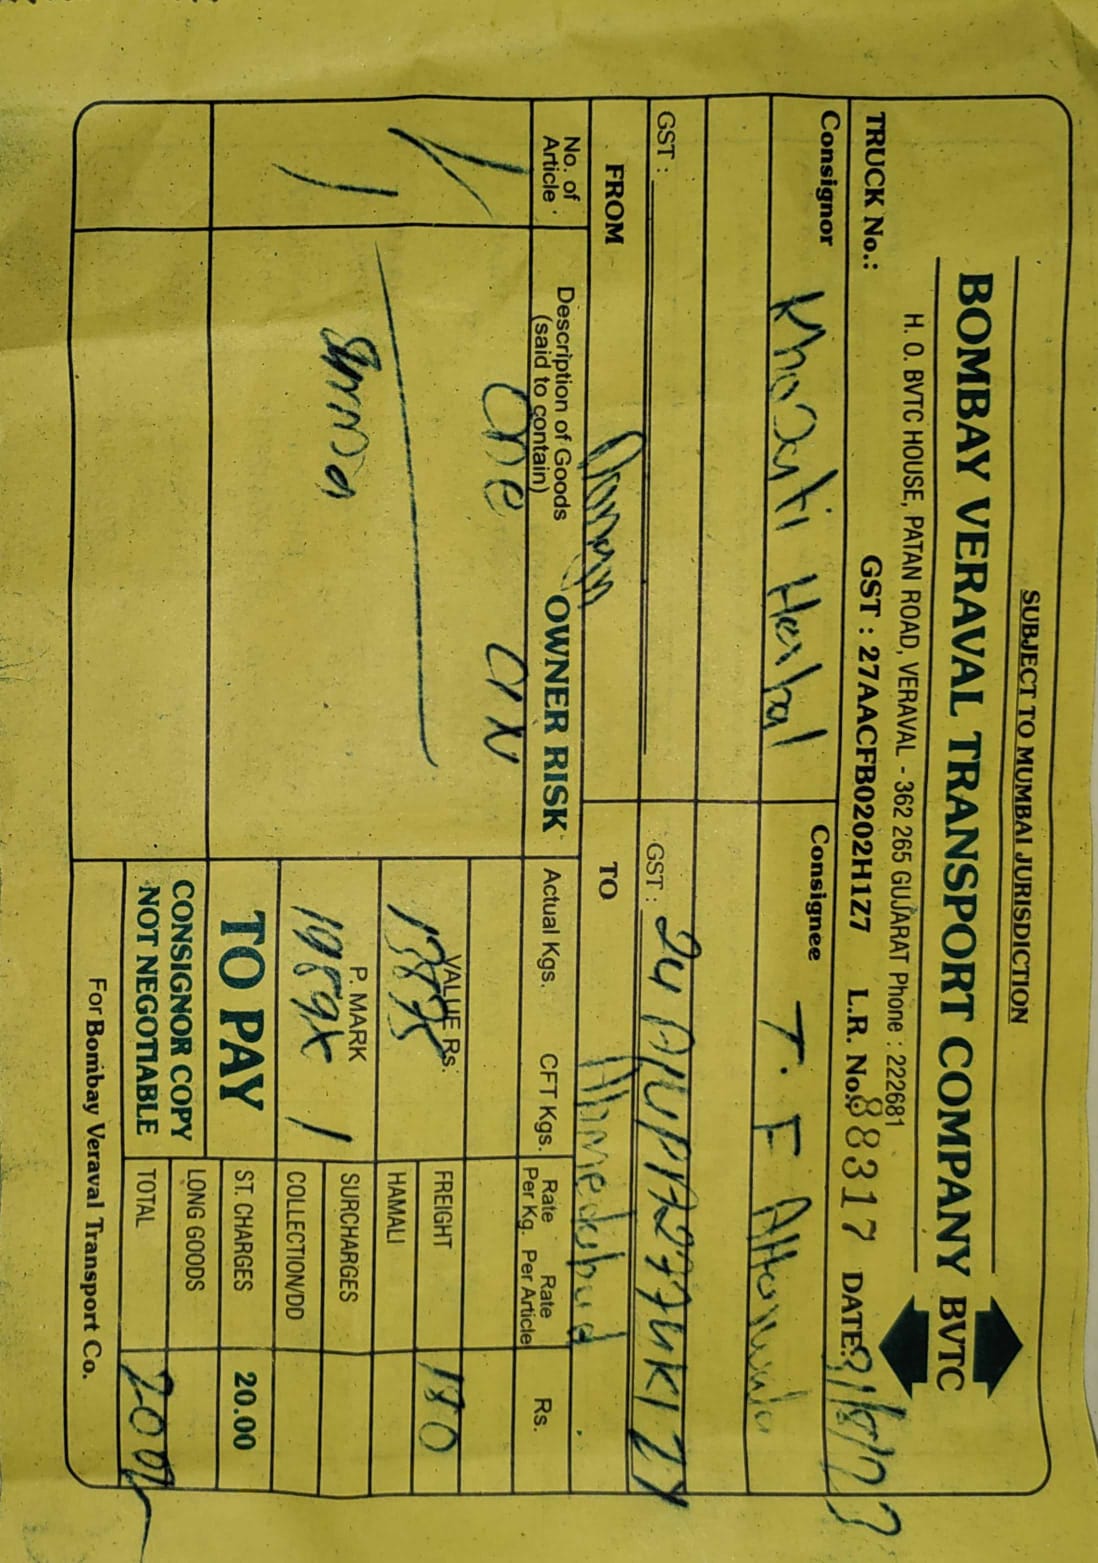 SUBJECT TO MUMBAI JURISDICTION
BOMBAY VERAVAL TRANSPORT COMPANY BVTC
H. O. BVTC HOUSE, PATAN ROAD, VERAVAL - 362 265 GUJARAT Phone : 222681
TRUCK No.: GST : 27AACFB0202H1Z7 L.R. No. 88317 DATE:
Consignor Khadayti Herbal Consignee T. F Attarwala
GST : GST :
FROM TO Ahmedabad
No. of Article Description of Goods (said to contain) OWNER RISK Actual Kgs. CFT Kgs. Rate Per Kg. Rate Per Article Rs.
1 one CTN
FREIGHT 180
VALUE Rs.
HAMALI
P. MARK
SURCHARGES
1
COLLECTION/DD
TO PAY ST. CHARGES 20.00
CONSIGNOR COPY
NOT NEGOTIABLE
LONG GOODS
TOTAL 200/-
For Bombay Veraval Transport Co.